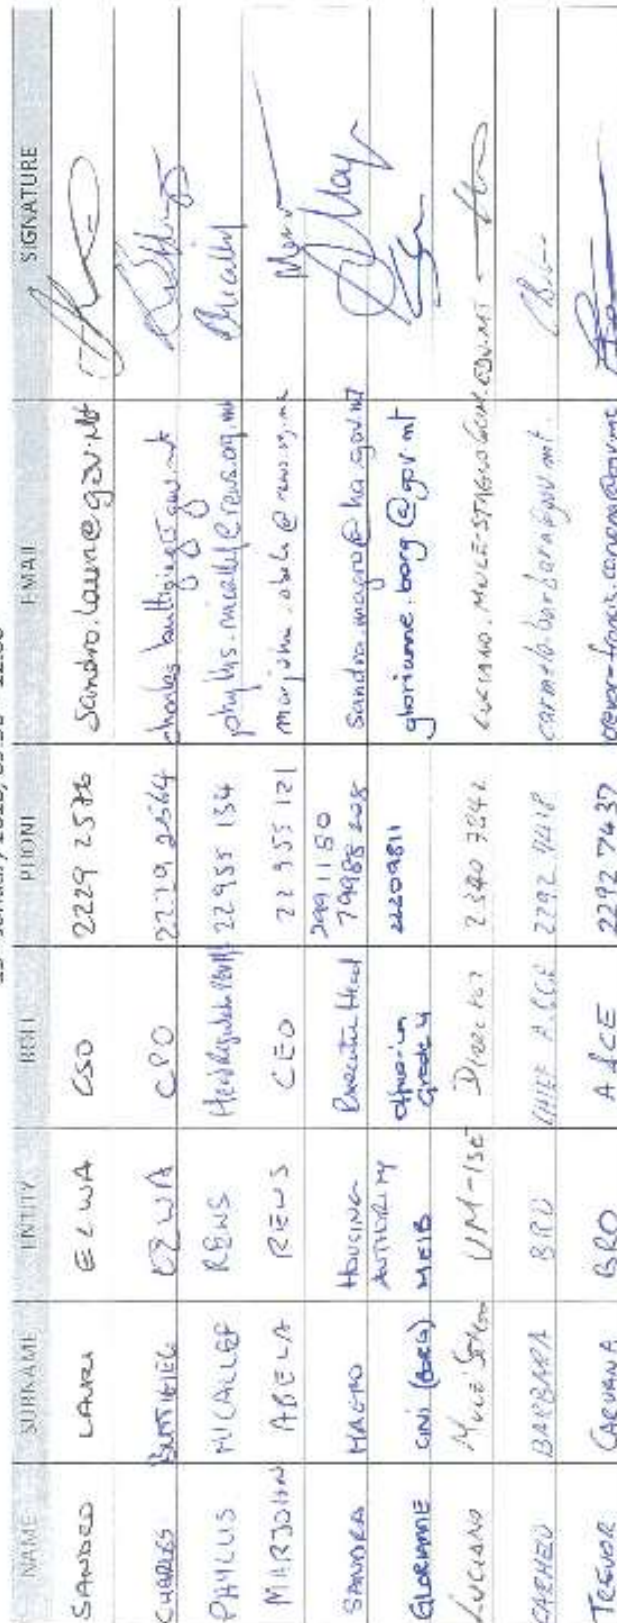 NAME SURNAME ENTITY ROLE PHONE EMAIL SIGNATURE
SANDRO LAURI EEWA CSO 2229 2576 sandro.lauri@gov.mt
CHARLES BUTTIGIEG EEWA CPO 2229 2564 charles.buttigieg@gov.mt
PHYLLIS MICALLEF REWS 22955 154 phyllis.micallef@rews.org.mt PMicallef
MARJOHN ABELA REWS CEO 22 955 121 marjohn.abela@rews.org.mt
SANDRA MAGRO HOUSING AUTHORITY Executive Head 29911150 sandra.magro@ha.gov.mt
GLORIANNE CINI (BORG) Grade 4 22209811 glorianne.borg@gov.mt
LUCIANO UM-ISE Director 2340 7242
CARMELO BARBARA BRO CHIEF A&CE 2292 7418 carmelo.barbara@gov.mt
TREVOR CARUANA BRO A&CE 2292 7437